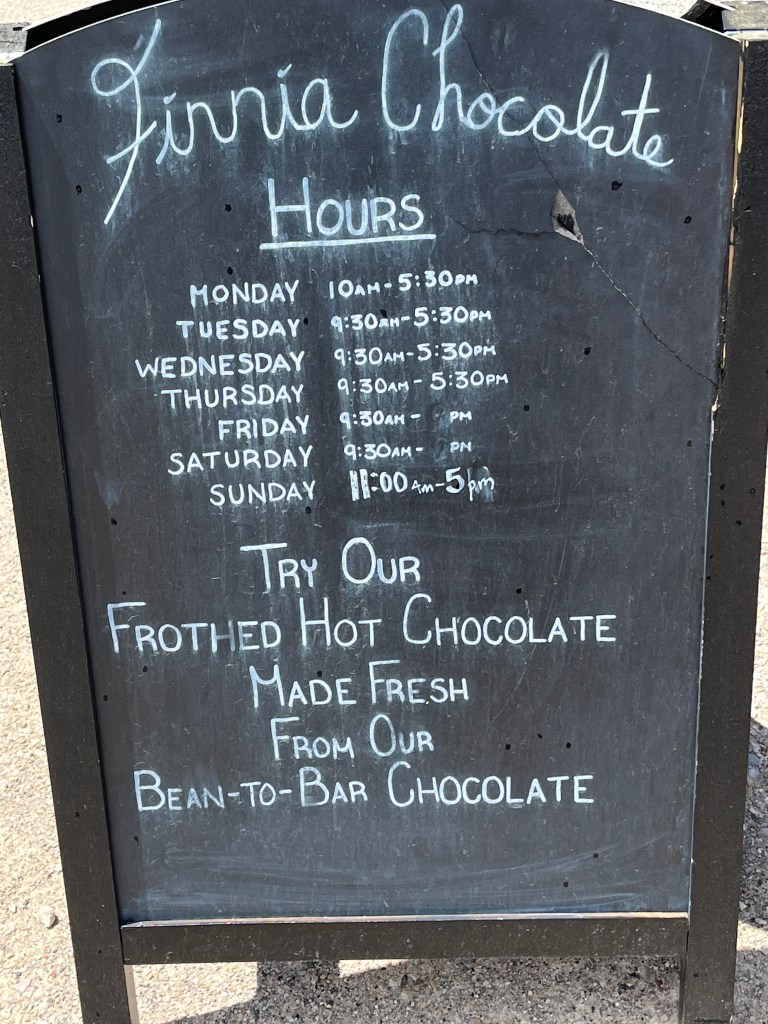 Finnia Chocolate
HOURS
MONDAY 10AM-5:30PM
TUESDAY 9:30AM-5:30PM
WEDNESDAY 9:30AM-5:30PM
THURSDAY 9:30AM-5:30PM
FRIDAY 9:30AM- PM
SATURDAY 9:30AM- PM
SUNDAY 11:00AM-5pm
TRY OUR
FROTHED HOT CHOCOLATE
MADE FRESH
FROM OUR
BEAN-TO-BAR CHOCOLATE